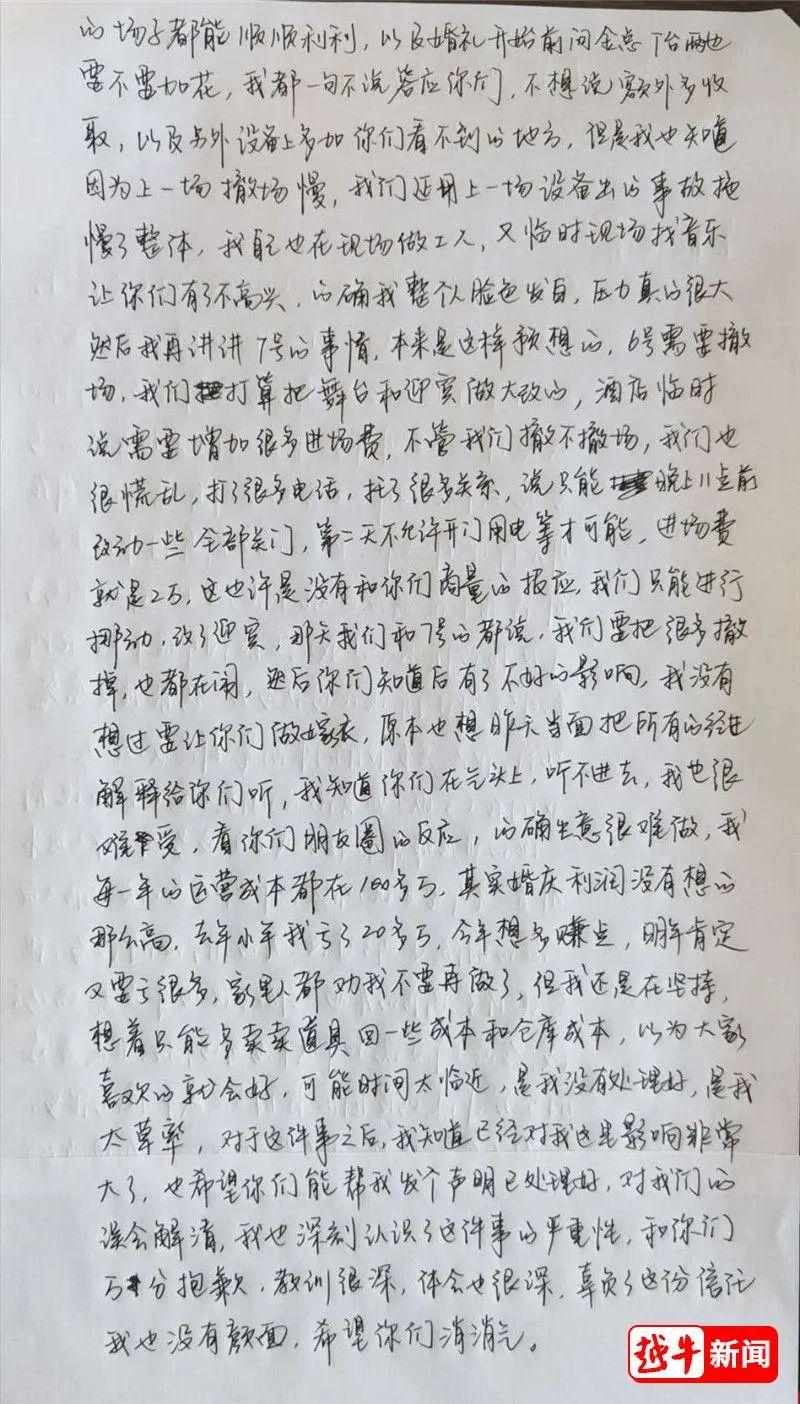 的场子都能顺顺利利，以及婚礼开始前问金总T台两边
要不要加花，我都一句不说答应你们，不想说额外多收
取，以及另外设备上多加你们看不到的地方，但是我也知道
因为上一场撤场慢，我们还用上一场设备出的事故拖
慢了整体，我自己也在现场做工人，又临时现场找音乐
让你们有了不高兴，的确我整个人脸色发白，压力真的很大
然后我再讲讲7号的事情，本来是这样预想的，6号需要撤
场，我们打算把舞台和迎宾做大改的，酒店临时
说需要增加很多进场费，不管我们撤不撤场，我们也
很慌乱，打了很多电话，托了很多关系，说只能晚上11点前
改动一些全部关门，第二天不允许开门用电等才可能，进场费
就是2万，这也许是没有和你们商量的报应，我们只能进行
挪动，改了迎宾，那天我们和7号的都说，我们要把很多撤
掉，也都在闹，然后你们知道后有了不好的影响，我没有
想过要让你们做嫁衣，原本也想昨天当面把所有的经过
解释给你们听，我知道你们在气头上，听不进去，我也很
难受，看你们朋友圈的反应，的确生意很难做，我
每一年的运营成本都在100多万，其实婚庆利润没有想的
那么高，去年小年我亏了20多万，今年想多赚点，明年肯定
又要亏很多，家里人都劝我不要再做了，但我还是在坚持，
想着只能多卖卖道具回一些成本和仓库成本，以为大家
喜欢的就会好，可能时间太临近，是我没有处理好，是我
太草率，对于这件事之后，我知道已经对我这里影响非常
大了，也希望你们能帮我发个声明已处理好，对我们的
误会解清，我也深刻认识了这件事的严重性，和你们
万分抱歉，教训很深，体会也很深，辜负了这份信任
我也没有颜面，希望你们消消气。
越牛新闻